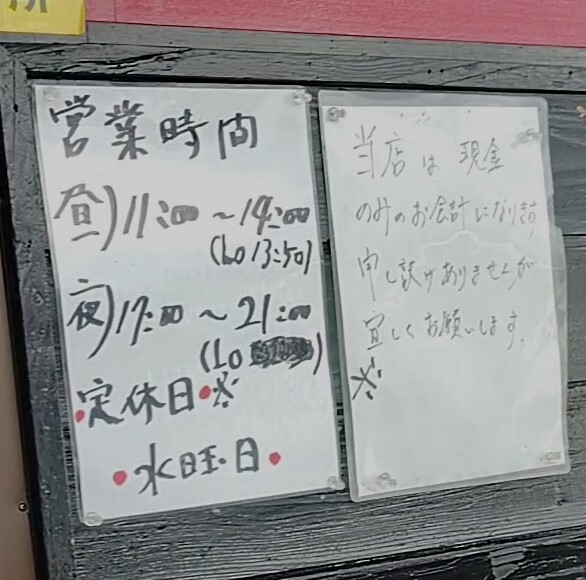 営業時間
昼)11:00～14:00
(LO 13:50)
夜)17:00～21:00
(LO
定休日※
水曜日
当店は現金
のみのお会計になります
申し訳ありませんが
宜しくお願いします。
※